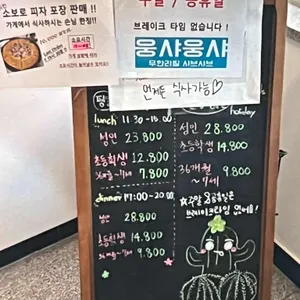 소보로 피자 포장 판매 !!
가게에서 식사하시는 손님 한정!!
주말 / 공휴일
브레이크 타임 없습니다!
움샤움샤
무한리필 샤브샤브
언제든 식사가능♡
lunch 11:30-15:00
성인 23.800
초등학생 12.800
36개월~7세 7.800
dinner 17:00-20:00
성인 28.800
초등학생 14.800
36개월~7세 9.800
holiday
성인 28.800
초등학생 14.800
36개월~7세 9.800
주말, 공휴일은
브레이크타임 없어요!